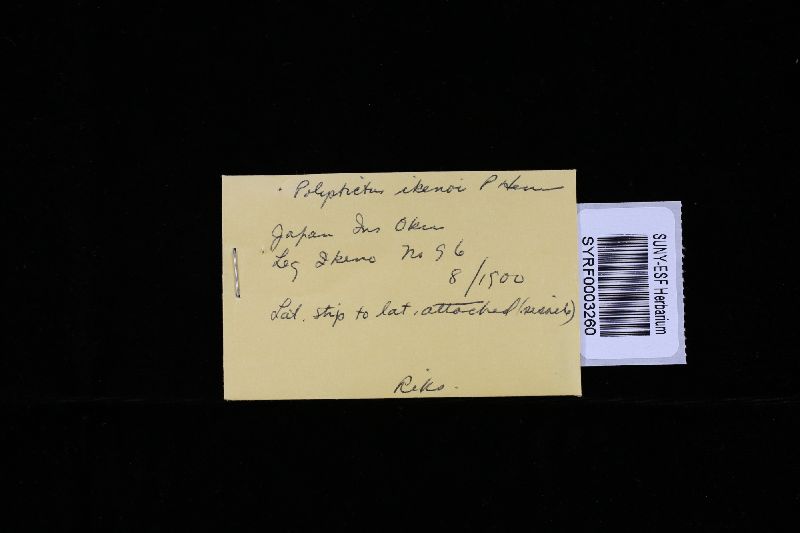 Polystictus ikenoi P Henn
Japan Ins Oku
Leg Ikeno No 96
8/1900
Lat. stip to lat. attached
Riks.
SUNY-ESF Herbarium
SYRF0003260